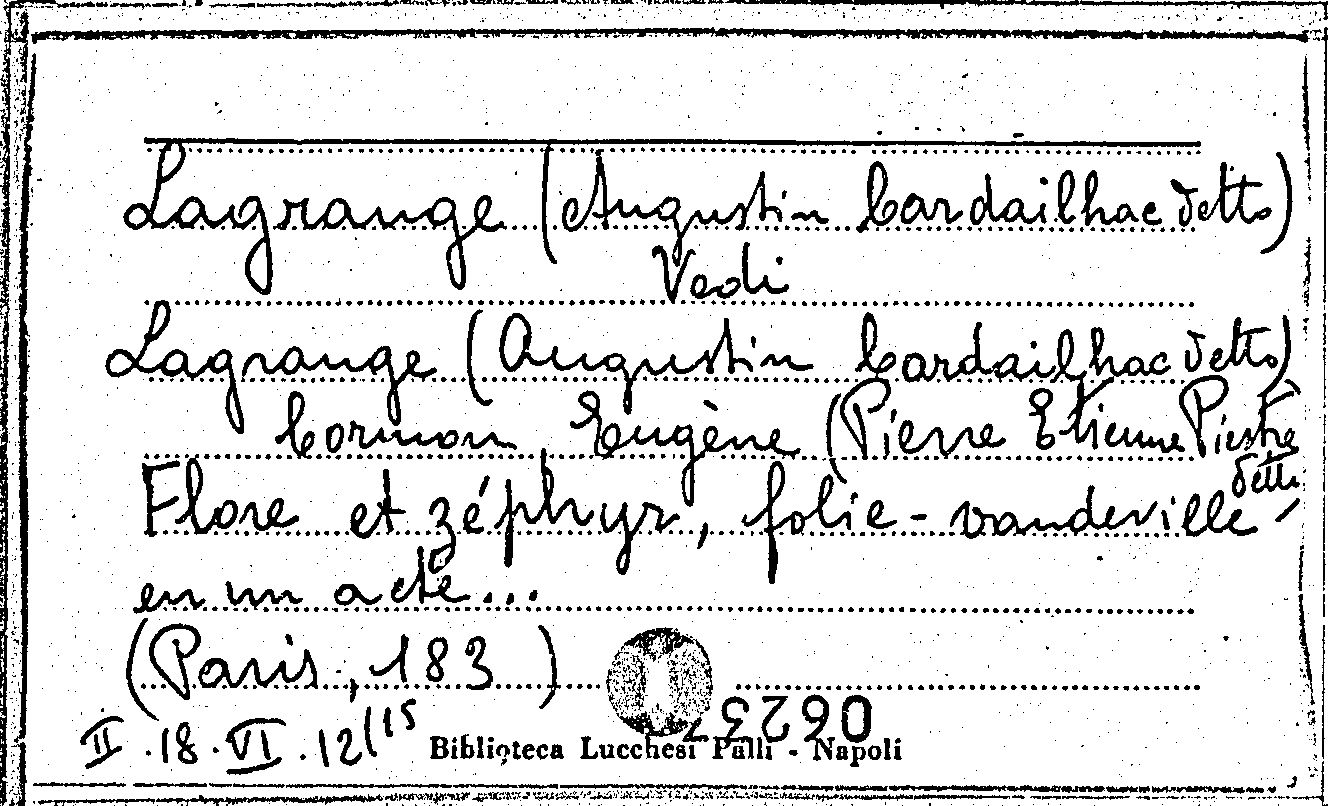 Lagrange (Augustin Cardailhac detto)
Vedi
Lagrange (Augustin Cardailhac detto)
Cormon, Eugène (Pierre Etienne Piestre
detto
Flore et zéphyr, folie-vaudeville
en un acte...
(Paris, 183 )
II.18.VI.12/15
Biblioteca Lucchesi Palli - Napoli